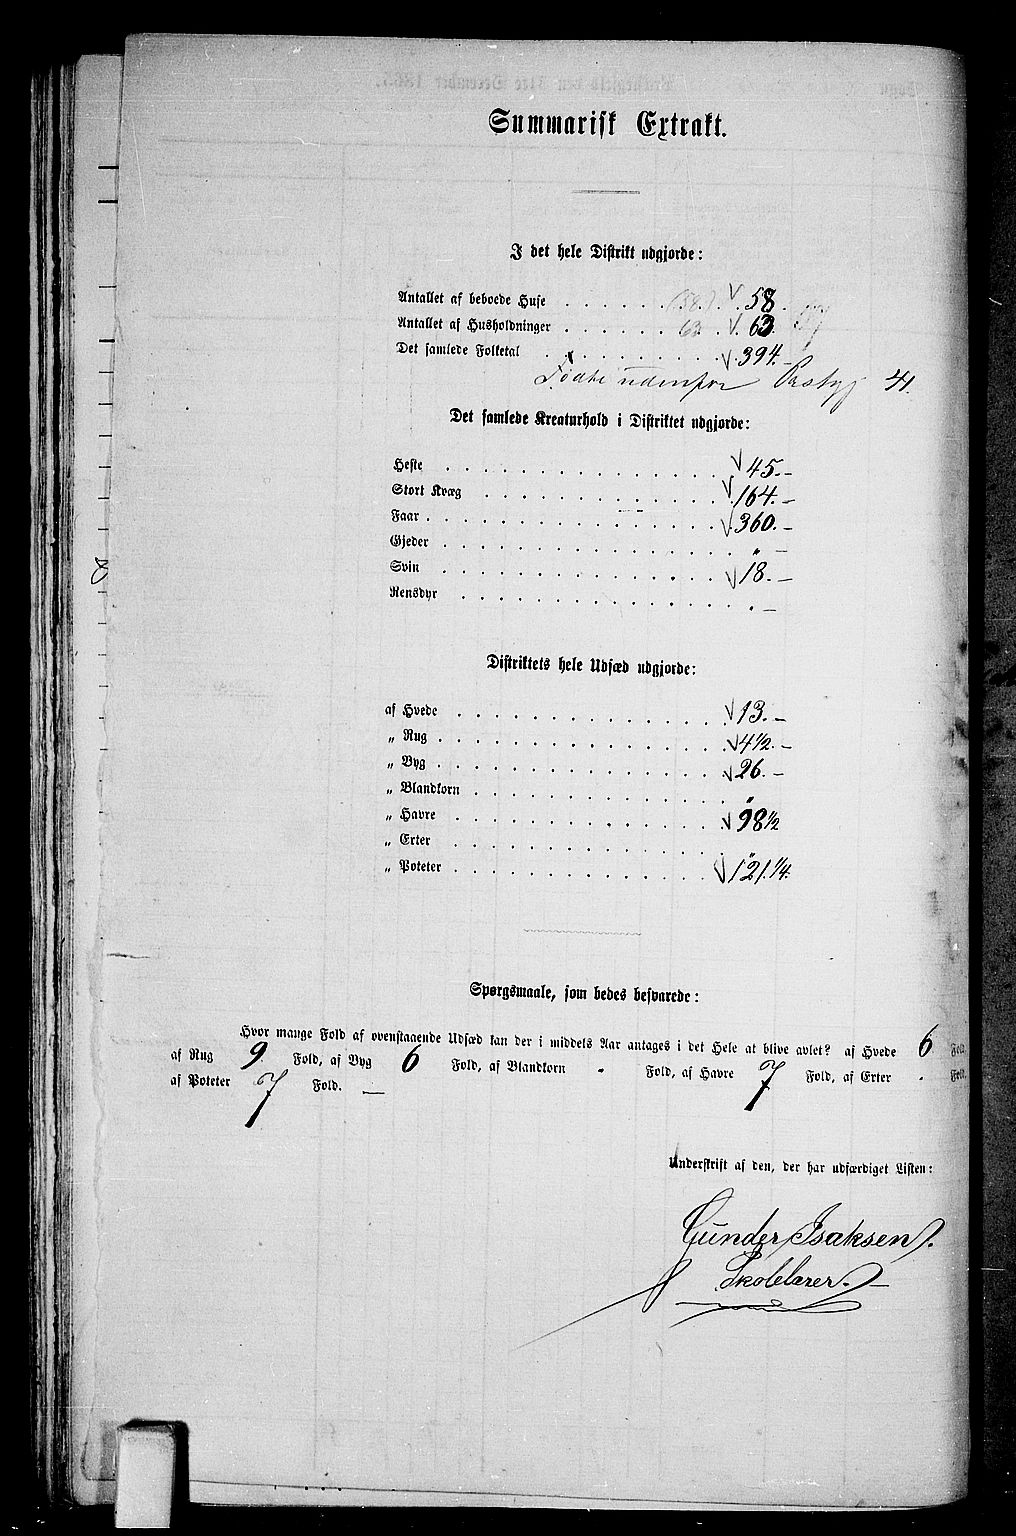 Summarisk Extrakt.
I det hele Distrikt udgjorde:
Antallet af beboede Huse . . . . . . (58.) . √ 58.
Antallet af Husholdninger . . . . . . 63 . √. 63.
Det samlede Folketal . . . . . . . . √. 394.–
Fødte udenfor 41.
Det samlede Kreaturhold i Distriktet udgjorde:
Heste . . . . . . . . . . √ 45.–
Stort Kvæg . . . . . . . . . √ 164.–
Faar . . . . . . . . . . . √ 360.–
Gjeder . . . . . . . . . . " –
Svin . . . . . . . . . . √ 18.–
Rensdyr . . . . . . . . . . . –
Distriktets hele Udsæd udgjorde:
af Hvede . . . . . . . . . . √ 13.–
„ Rug . . . . . . . . . . . √ 4½.–
„ Byg . . . . . . . . . . . √ 26.–
„ Blandkorn . . . . . . . . . "
„ Havre . . . . . . . . . . √ 98½
„ Erter . . . . . . . . . . "
„ Poteter . . . . . . . . . . √ 121.¼.
Spørgsmaale, som bedes besvarede:
Hvor mange Fold af ovenstaaende Udsæd kan der i middels Aar antages i det Hele at blive avlet? af Hvede 6 Fold,
af Rug 9 Fold, af Byg 6 Fold, af Blandkorn " Fold, af Havre 7 Fold, af Erter . Fold,
af Poteter 7 Fold. –
Underskrift af den, der har udfærdiget Listen:
Gunder Isaksen.
Skolelærer.